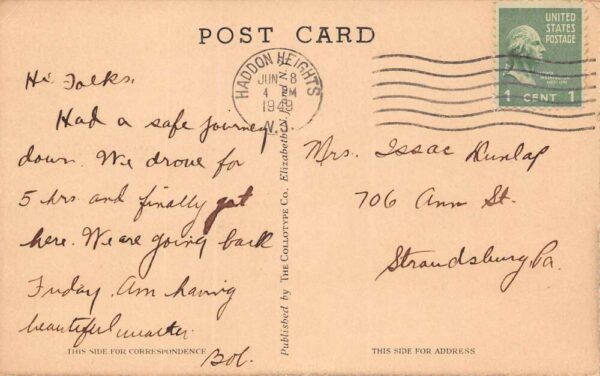 POST CARD
UNITED
STATES
POSTAGE
1 CENT 1
HADDON HEIGHTS
JUN 8
4 M
N.J.
Hi Folks,
Had a safe journey
down. We drove for
5 hrs and finally got
here. We are going back
Friday. Am having
beautiful weather.
Bob.
Mrs. Issac Dunlap
706 Ann St.
Stroudsburg, Pa.
Published by THE COLLOTYPE CO. Elizabeth, N.J. and N.Y.
THIS SIDE FOR CORRESPONDENCE
THIS SIDE FOR ADDRESS